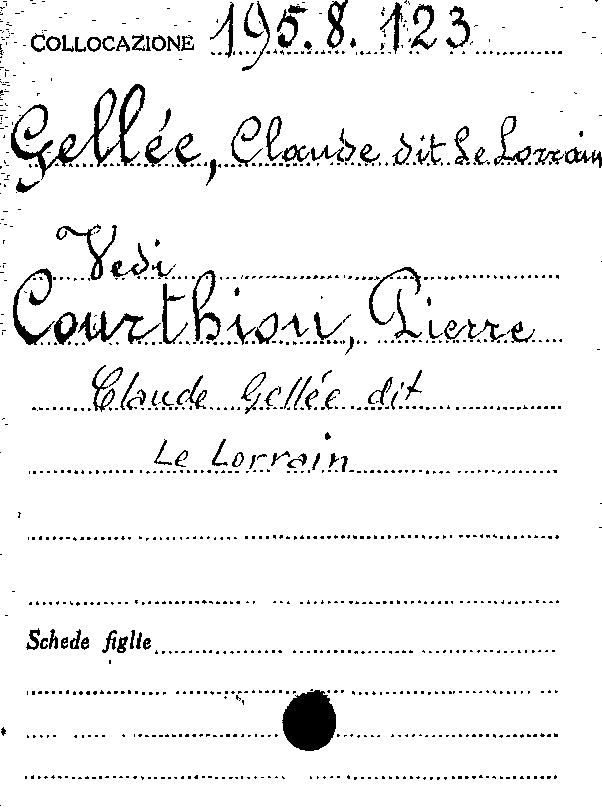 COLLOCAZIONE 195.8.123
Gellée, Claude dit Le Lorrain
Vedi
Courthion, Pierre
Claude Gellée dit
Le Lorrain
Schede figlie